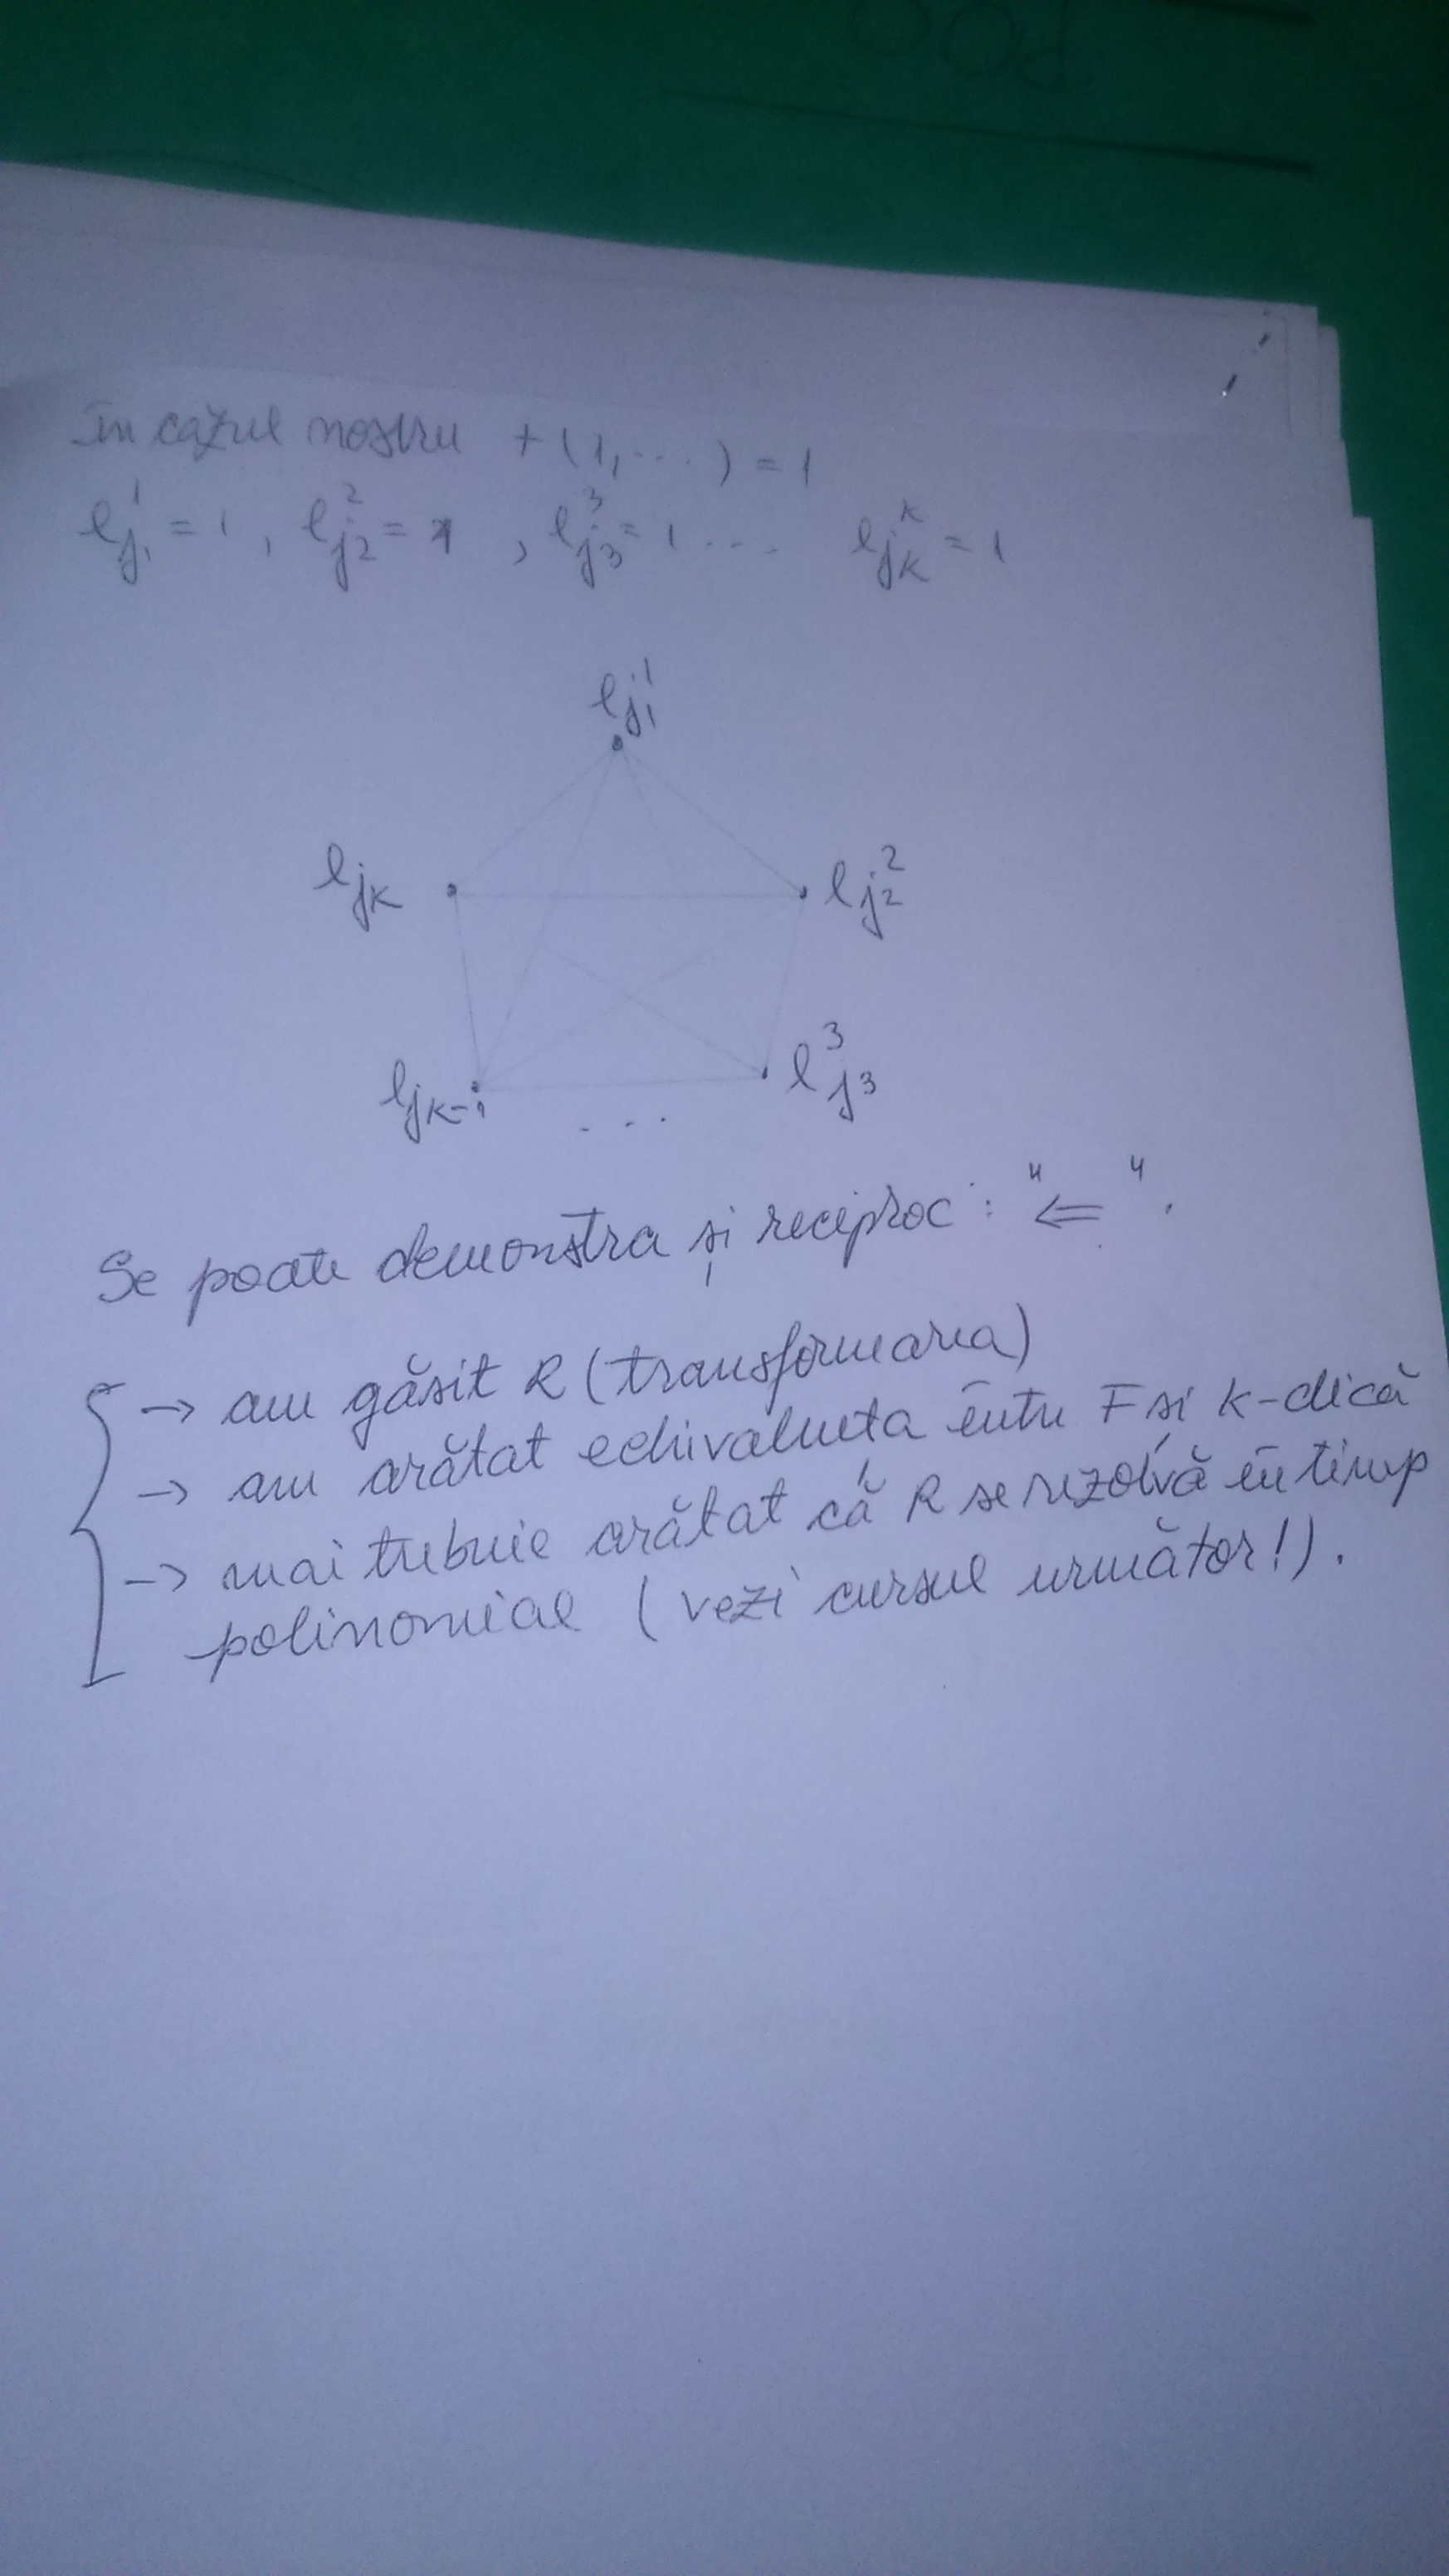 în cazul nostru + (1, ...) = 1
l_{j_1}^1 = 1, l_{j_2}^2 = 1, l_{j_3}^3 = 1 ... l_{j_k}^k = 1
l_{j_1}^1
l_{j_k} l_{j_2}^2
l_{j_{k-1}} ... l_{j_3}^3
Se poate demonstra și reciproc: "⇐".
→ am găsit R (transformarea)
→ am arătat echivalența între F și k-clică
→ mai trebuie arătat că R se rezolvă în timp
polinomial (vezi cursul următor!).